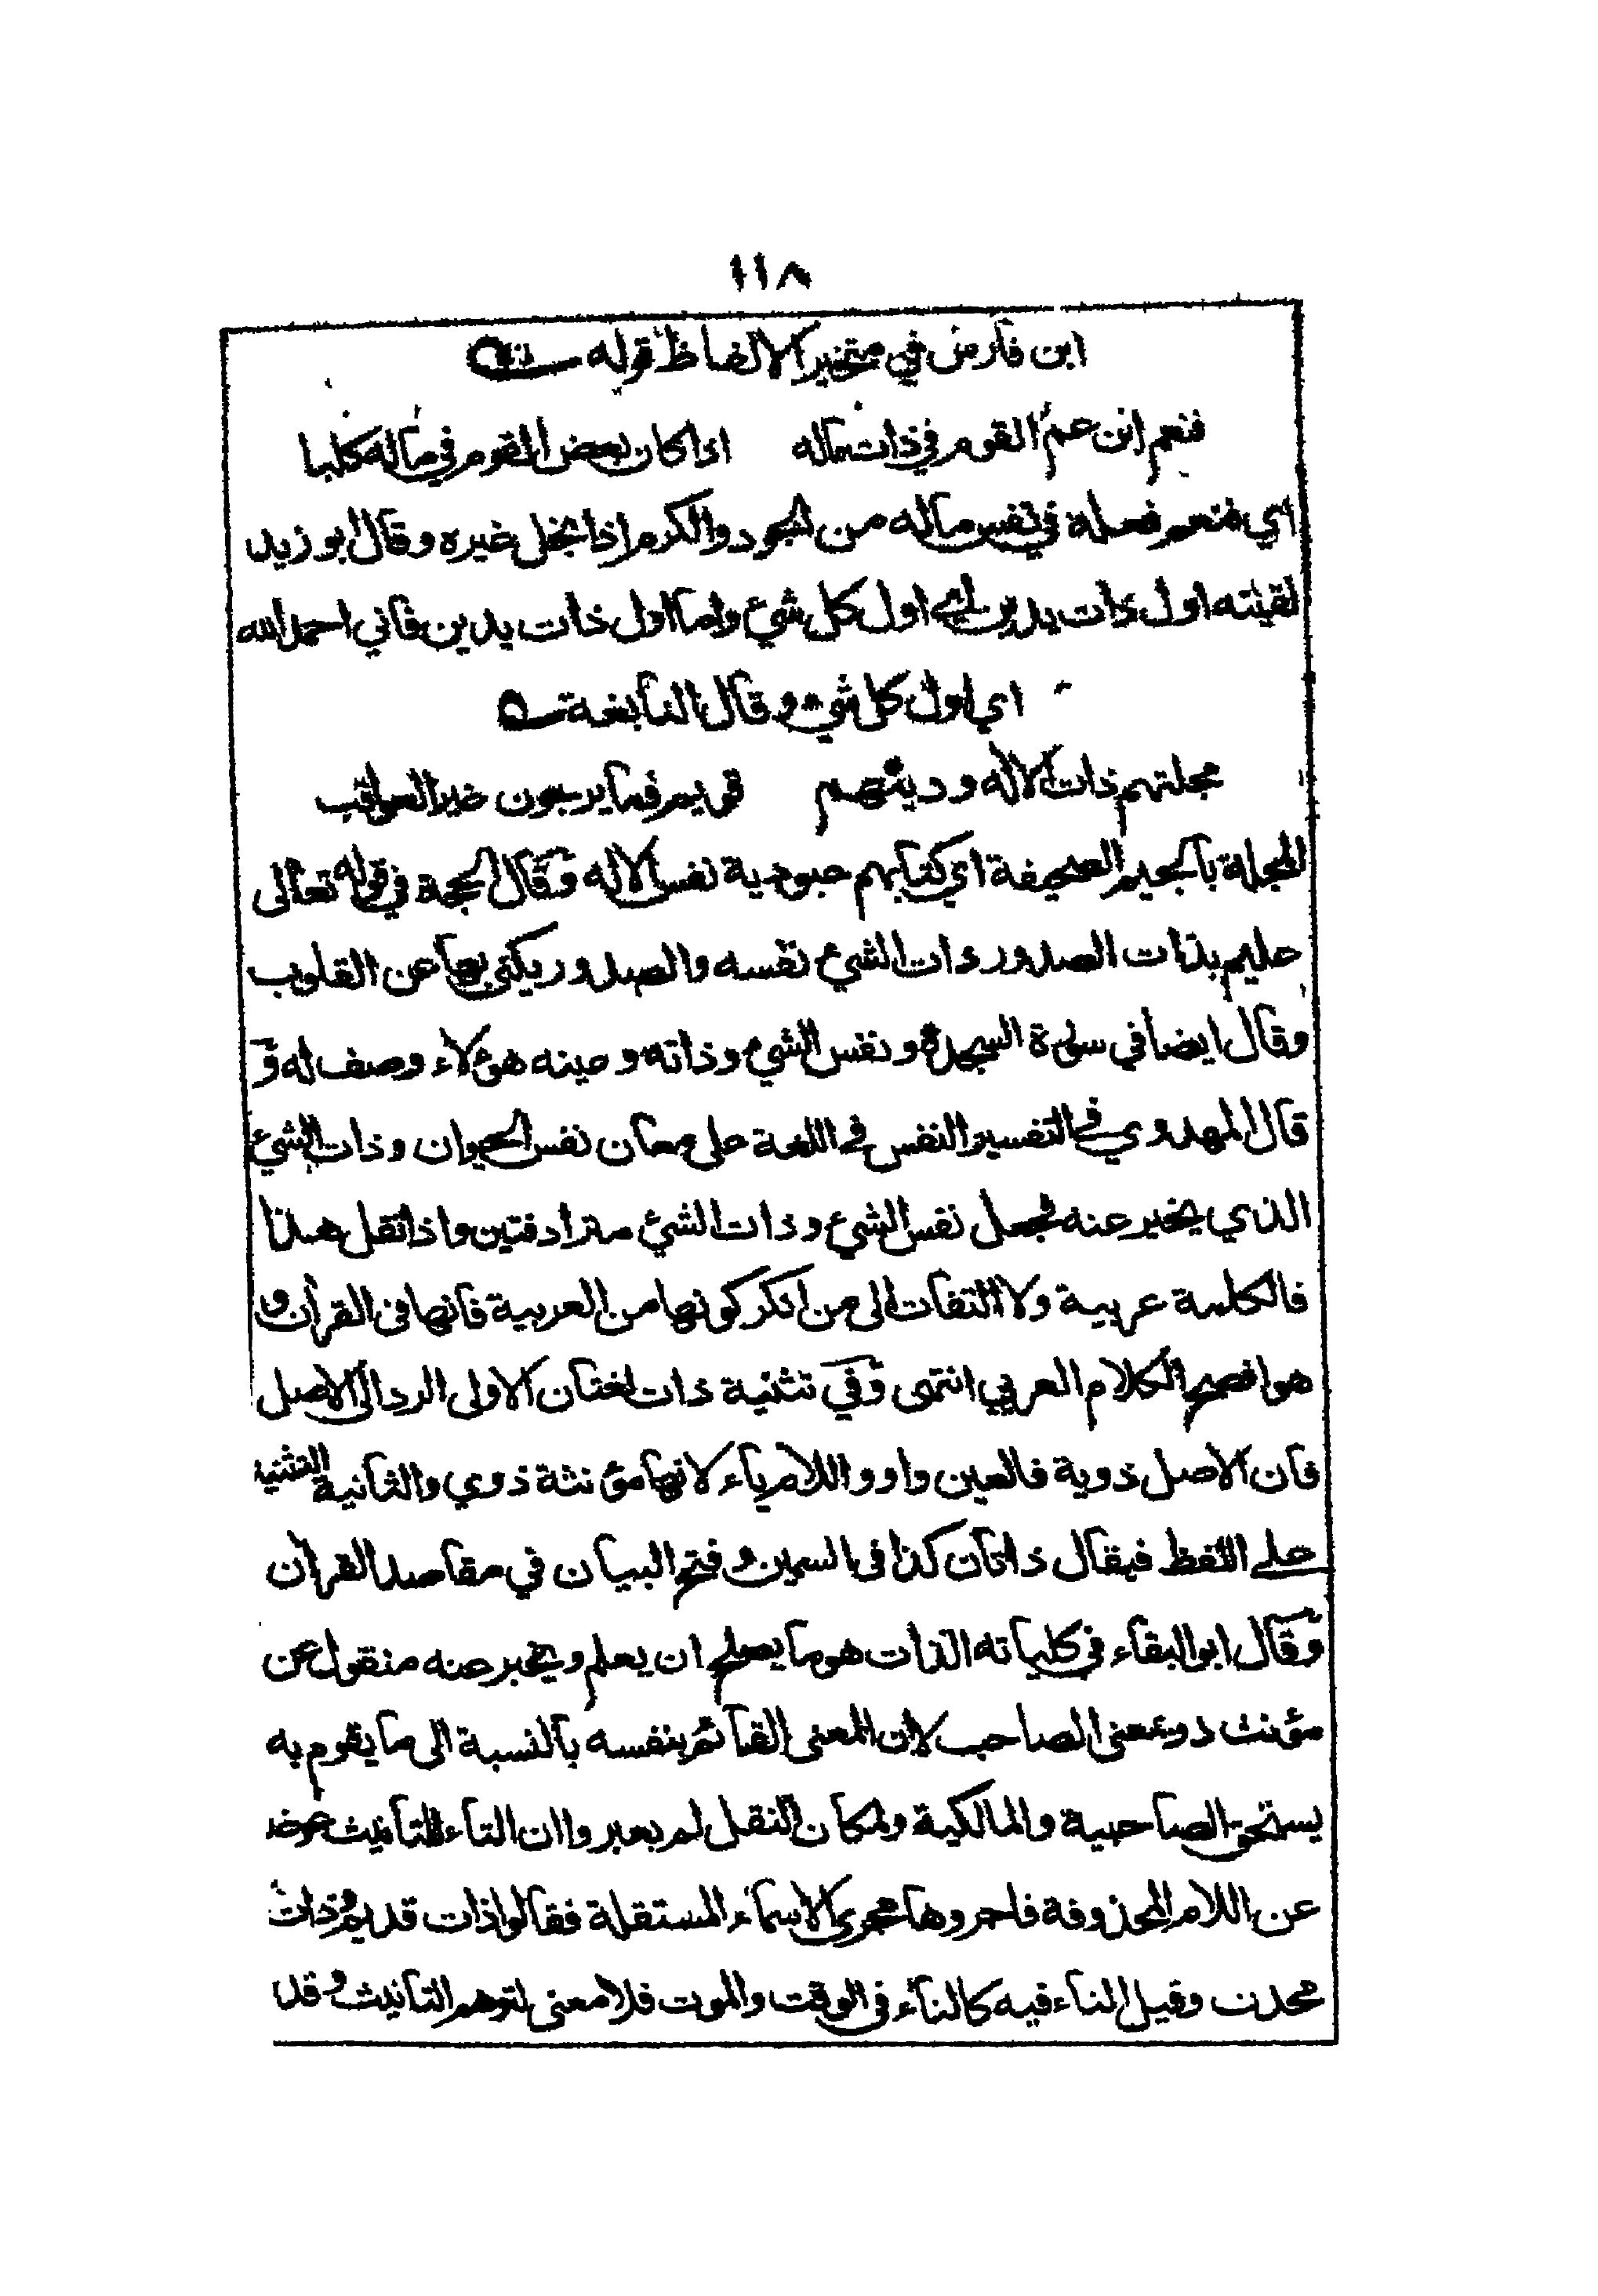 ١١٨
ابن فارس في متخير الالفاظ قوله
فنعم ابن عم القوم في ذات ماله اذا كان بعض القوم في ماله كلبا
اي فنعم فعله في نفس ماله من الجود والكرم اذا بخل غيره وقال ابو زيد
لقيته اول ذات يدين اي اول كل شئ واما اول ذات يدين فاني احمد الله
اي اول كل شئ وقال النابغة
مجلتهم ذات الاله ودينهم قويم فما يرجون خير العواقب
المجلة بالجيم الصحيفة اي كتابهم عبودية نفس الاله وقال الحجة في قوله تعالى
عليم بذات الصدور ذات الشئ نفسه والصدور يكنى بها عن القلوب
وقال ايضا في سورة السجدة ونفس الشئ وذاته وعينه هؤلاء وصف له و
قال المهدوي في التفسير النفس في اللغة على معان نفس الحيوان وذات الشئ
الذي يخبر عنه فجعل نفس الشئ وذات الشئ مترادفتين واذا نقل هذا
فالكلمة عربية ولا التفات الى من انكر كونها من العربية فانها في القرأن و
هو افصح الكلام العربي انتهى وفي تثنية ذات لغتان الاولى الرد الى الاصل
فان الاصل ذوية فالعين واو واللام ياء لانها مؤنثة ذوي والثانية التثنية
على اللفظ فيقال ذاتان كذا في السمين وفتح البيان في مقاصد القرأن
وقال ابو البقاء في كلياته الذات هو ما يصلح ان يعلم ويخبر عنه منقول عن
مؤنث ذو بمعنى الصاحب لان المعنى القائم بنفسه بالنسبة الى ما يقوم به
يستحق الصاحبية والمالكية ولمكان النقل لم يعبروا ان التاء للتانيث عوضا
عن اللام المحذوفة فاجروها مجرى الاسماء المستقلة فقالوا ذات قديم وذات
محدث وقيل التاء فيه كالتاء في الوقت والموت فلا معنى لتوهم التانيث وقد